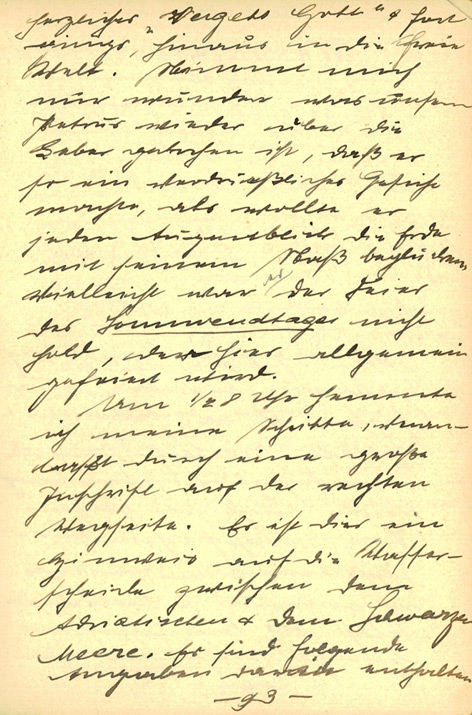 herzliches „Vergelts Gott“ & fort
gings, hinaus in die freie
Welt. Nimmt mich
nur wunder was unsern
Petrus wieder über die
Leber gekrochen ist, daß er
so ein verdrießliches Gesicht
machte, als wollte er
jeden Augenblick die Erde
mit seinem Naß beglücken.
Vielleicht war er der Feier
des Sonnwendtages nicht
hold, der hier allgemein
gefeiert wird.
Um ½8 Uhr hemmte
ich meine Schritte, veran-
laßt durch eine große
Inschrift auf der rechten
Wegseite. Es ist dies ein
Hinweis auf die Wasser-
scheide zwischen dem
Adriatischen & dem Schwarzen
Meere. Es sind folgende
Angaben darin enthalten
—93—